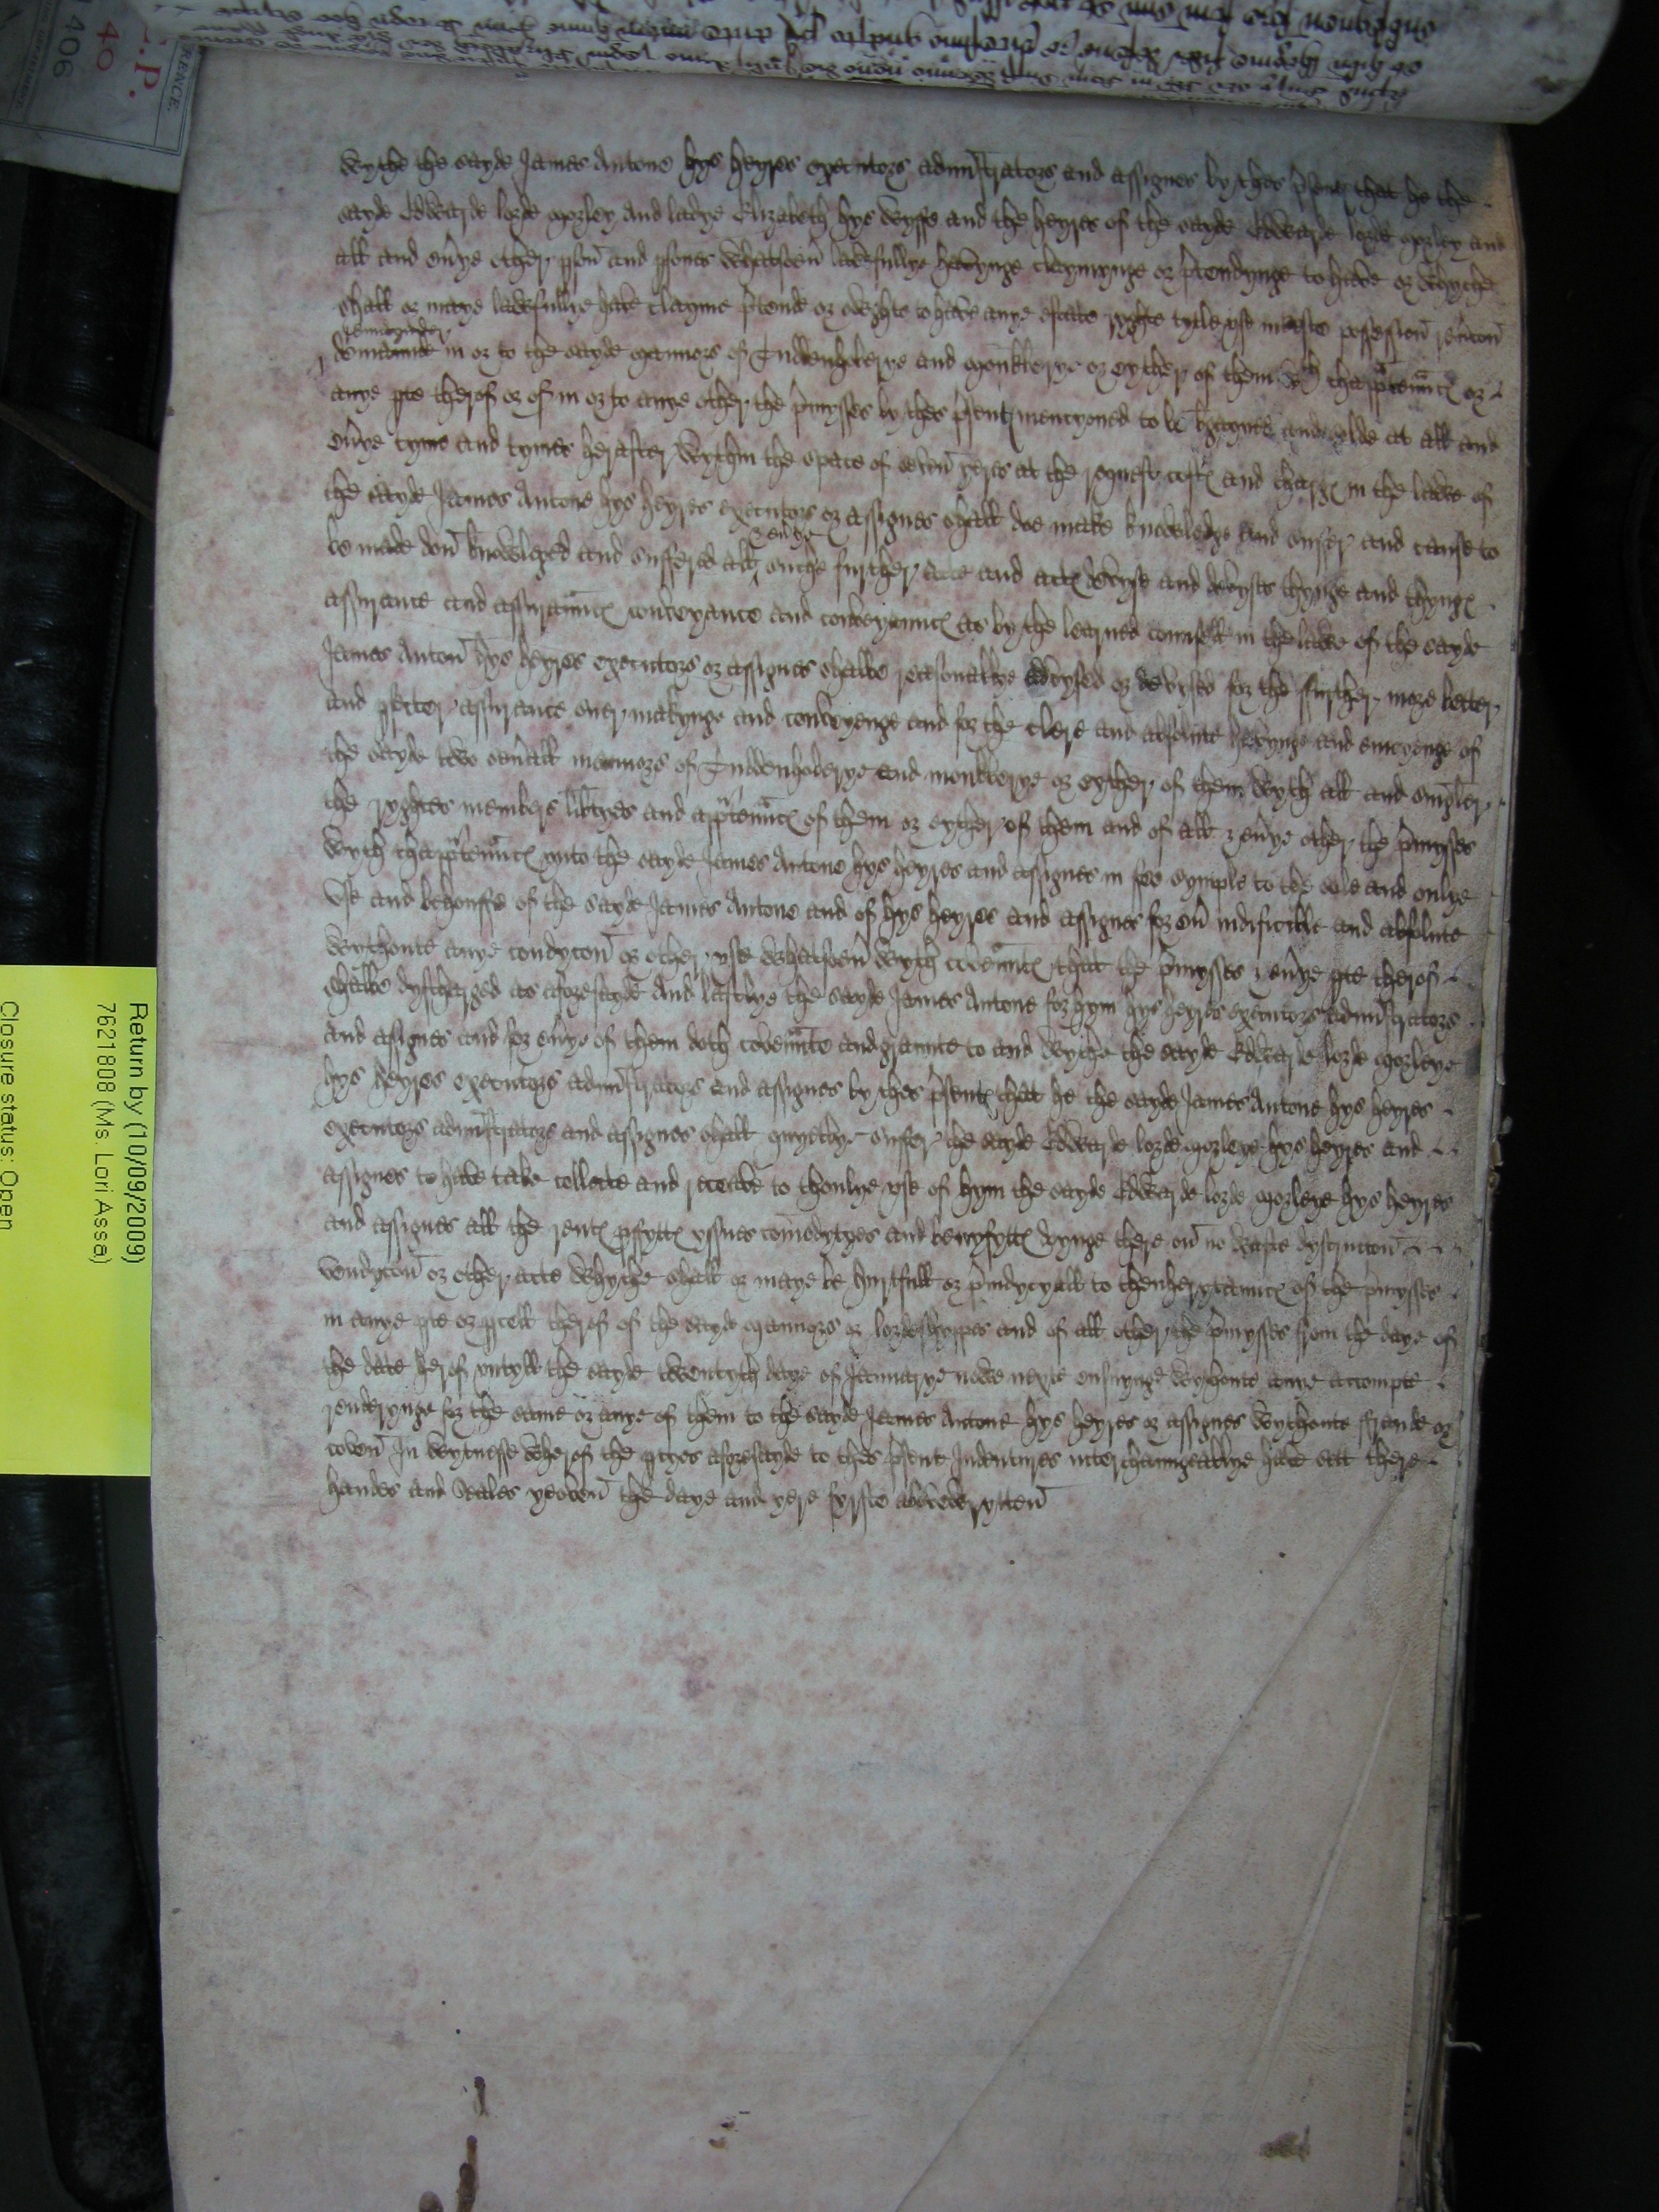 wythe the sayde James Antone hys heyres executors admīstrators and assignes by thes p̄sentꝭ that he the
sayde Edwarde lorde Morley and ladye Elizabeth hys wyffe and the heyres of the sayde Edwarde lorde Morley and
all and eūye other pson and psones whatsoeū lawfullye havynge claymynge or p̄tendynge to have or whyche
shall or maye lawfullye have clayme p̄tende or oughte to have anye estate ryghte tytle use possession reūcon
remaynder
in or to the sayde mannors of and Monkberye or eyther of them wth thapp̄tenn̄cꝭ or
anye pte therof or of in or to anye other the p̄mysses by thes p̄sentꝭ mencyoned to be bgayned and solde at all and
eūye tyme and tymes herafter wythin the space of seven yeres at the requeste costꝭ and chargꝭ in the lawe of
the sayde James Antone hys heyres executors or assignes shall doe make knowledge and suffer and cause to
& eūye
be made don knowleged and suffered all suche further acte and actꝭ devyse and devyses thynge and thyngꝭ
assurance and assurancꝭ conveyance and conveyancꝭ as by the learned counsell in the lawe of the sayde
James Anton hys heyres executors or assignes shalbe reasonablye advysed or devysed for the further more better
and pfecter assurance suer makynge and conveyenge and for the clere and absolute havynge and enioyenge of
the sayde two seūall mannors of and Monkberye or eyther of them wyth all and singler
the ryghtes members lib̄tyes and app̄tenn̄cꝭ of them or eyther of them and of all & eūye other the p̄mysses
wyth thapp̄tenn̄cꝭ unto the sayde James Antone hys heyres and assignes in fee symple to the sole and onlye
use and behouffe of the sayde James Antone and of hys heyres and assignes for eū indificible and absolute
wythoute anye condycon or other use whatsoeū wyth coven̄ntꝭ that the p̄mysses & eūye pte therof
shalbe dyscharged as aforesayde And lastlye the sayde James Antone for hym hys heyres executors admīstrators
and assignes and for eūye of them doth coven̄nte and graunte to and wythe the sayde Edwarde lorde Morleye
hys heyres executors admīstrators and assignes by thes p̄sentꝭ that he the sayde James Antone hys heyres
executors admīstrators and assignes shall quyetlye suffer the sayde Edwarde lorde Morleye hys heyres and
assignes to have take collecte and receave to thonlye use of hym the sayde Edwarde lorde Morleye hys heyres
and assignes all the rentꝭ pfyttꝭ yssues com̄odytyes and benyfyttꝭ doynge there on no waste dystruccon
vendycon or other acte whyche shall or maye be hurtfull or p̄iudycyall to thenherytancꝭ of the p̄mysses
in anye pte or pcell therof of the sayde mannors or lordeshyppes and of all other the p̄mysses from the daye of
the date herof untyll the sayde twentyth daye of Januarye nowe nexte ensuynge wythoute anye accompte
renderynge for the same or anye of them to the sayde James Antone hys heyres or assignes wythoute fraude or
coven In wytnesse wherof the ptyes aforesayde to thes p̄sent Indentures interchaungeablye have sett there
handes and Seales yeoven the daye and yere fyrste abovewrytten
Return by (10/09/2009)
7621808 (Ms. Lori Assa)
Closure status: Open
C.P.
40
1406